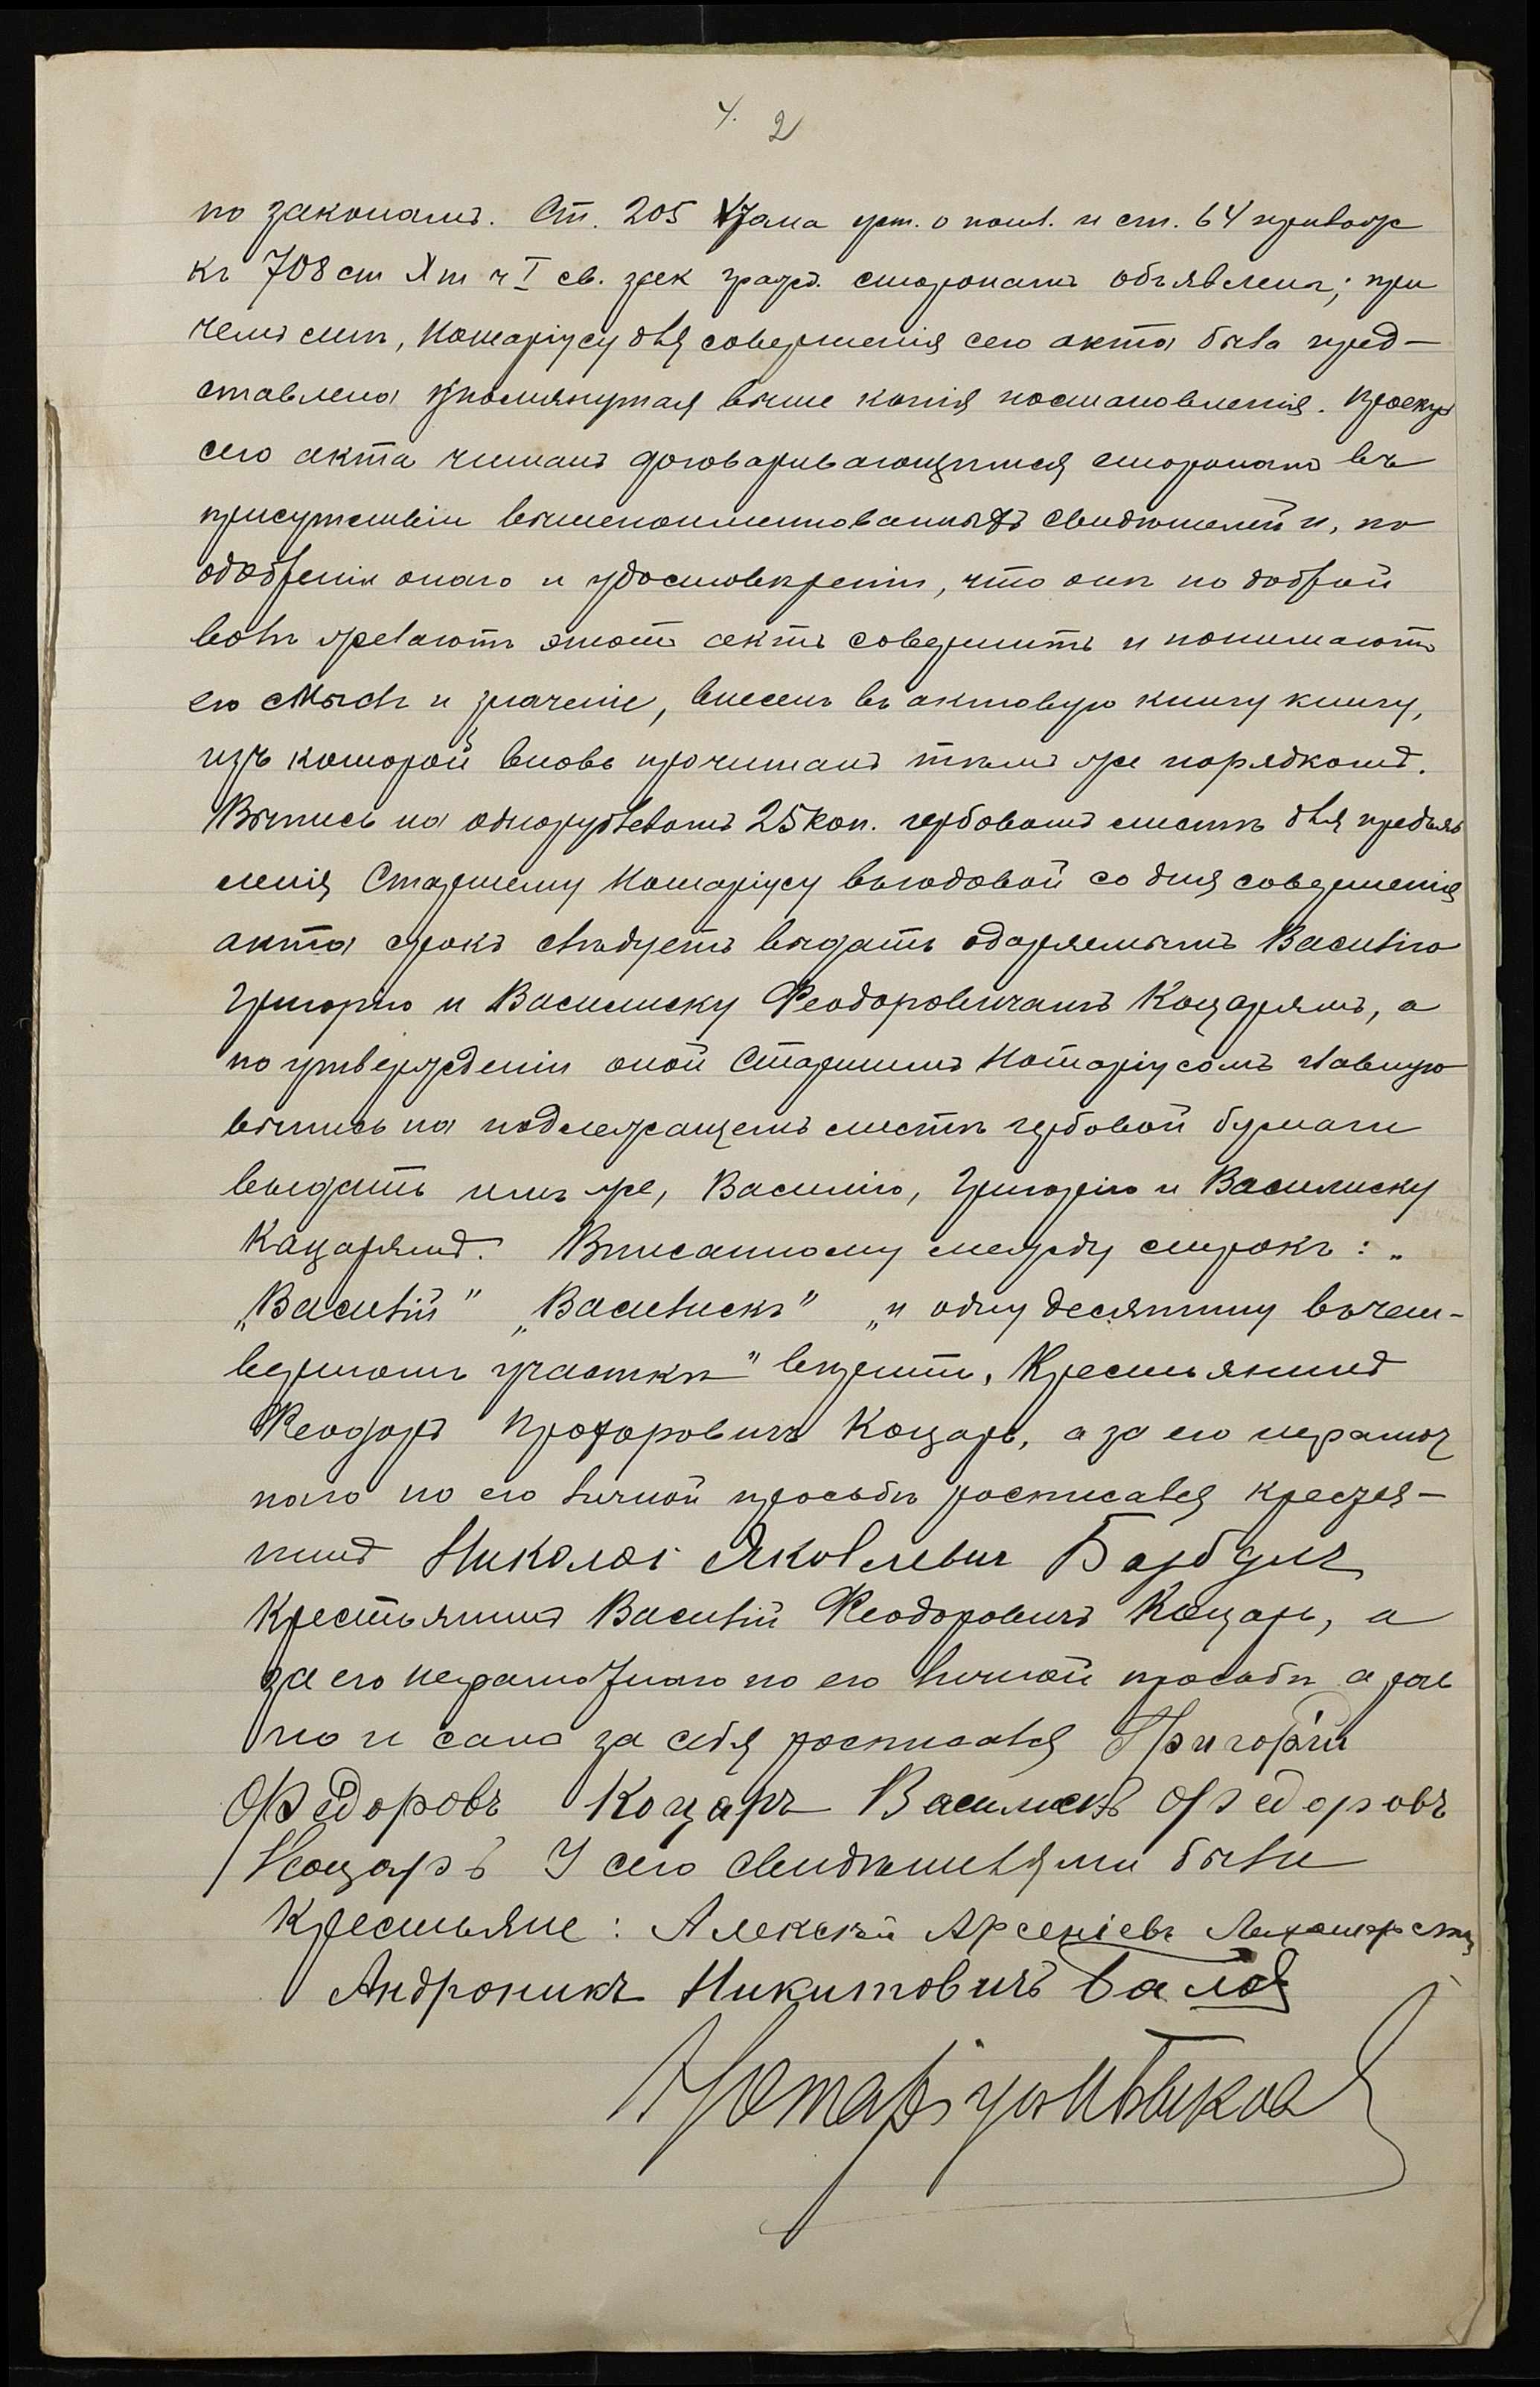 2
по законамъ. Ст. 205 V тома уст. о пошл. и ст. 64 прилож
къ 708 ст X т ч I св. зак гражд. сторонамъ объявлены; при
чемъ мнѣ, Нотаріусу для совершенія сего акта была пред-
ставлена упомянутая выше копія постановленія. Проектъ
сего акта читанъ договаривающимся сторонамъ въ
присутствіи вышепоименованныхъ свидѣтелей и, по
одобреніи онаго и удостовѣреніи, что они по доброй
волѣ желаютъ этотъ актъ совершить и понимаютъ
его смыслъ и значеніе, внесенъ въ актовую книгу книгу,
изъ которой вновь прочитанъ тѣмъ же порядкомъ.
Выпись на однорублевомъ 25 коп. гербовомъ листѣ для предъяв
ленія Старшему Нотаріусу въ годовой со дня совершенія
акта срокъ слѣдуетъ выдать одаряемымъ Василію
Григорію и Василиску Феодоровичамъ Коцарямъ, а
по утвержденіи оной Старшимъ Нотаріусомъ главную
выпись на подлежащемъ листѣ гербовой бумаги
выдать имъ же, Василію, Григорію и Василиску
Коцарямъ. Вписанному между строкъ: „
„Василій" „Василискъ" „и одну десятину въ чет-
вертомъ участкѣ" вѣрить. Крестьянинъ
Феодоръ Прохоровичъ Коцарь, а за его неграмот
наго по его личной просьбѣ росписался крестья-
нинъ Николай Яковлевич Барбулъ
Крестьянинъ Василій Феодоровичъ Коцарь, а
за его неграмотнаго по его личной просьбѣ а рав
но и самъ за себя росписался Григорій
Федоровъ Коцаръ Василискъ Федоровъ
Коцаръ У сего свидѣтелями были
Крестьяне: Алексѣй Арсеніевъ
Андроникъ Никитовичъ
Нотаріусъ